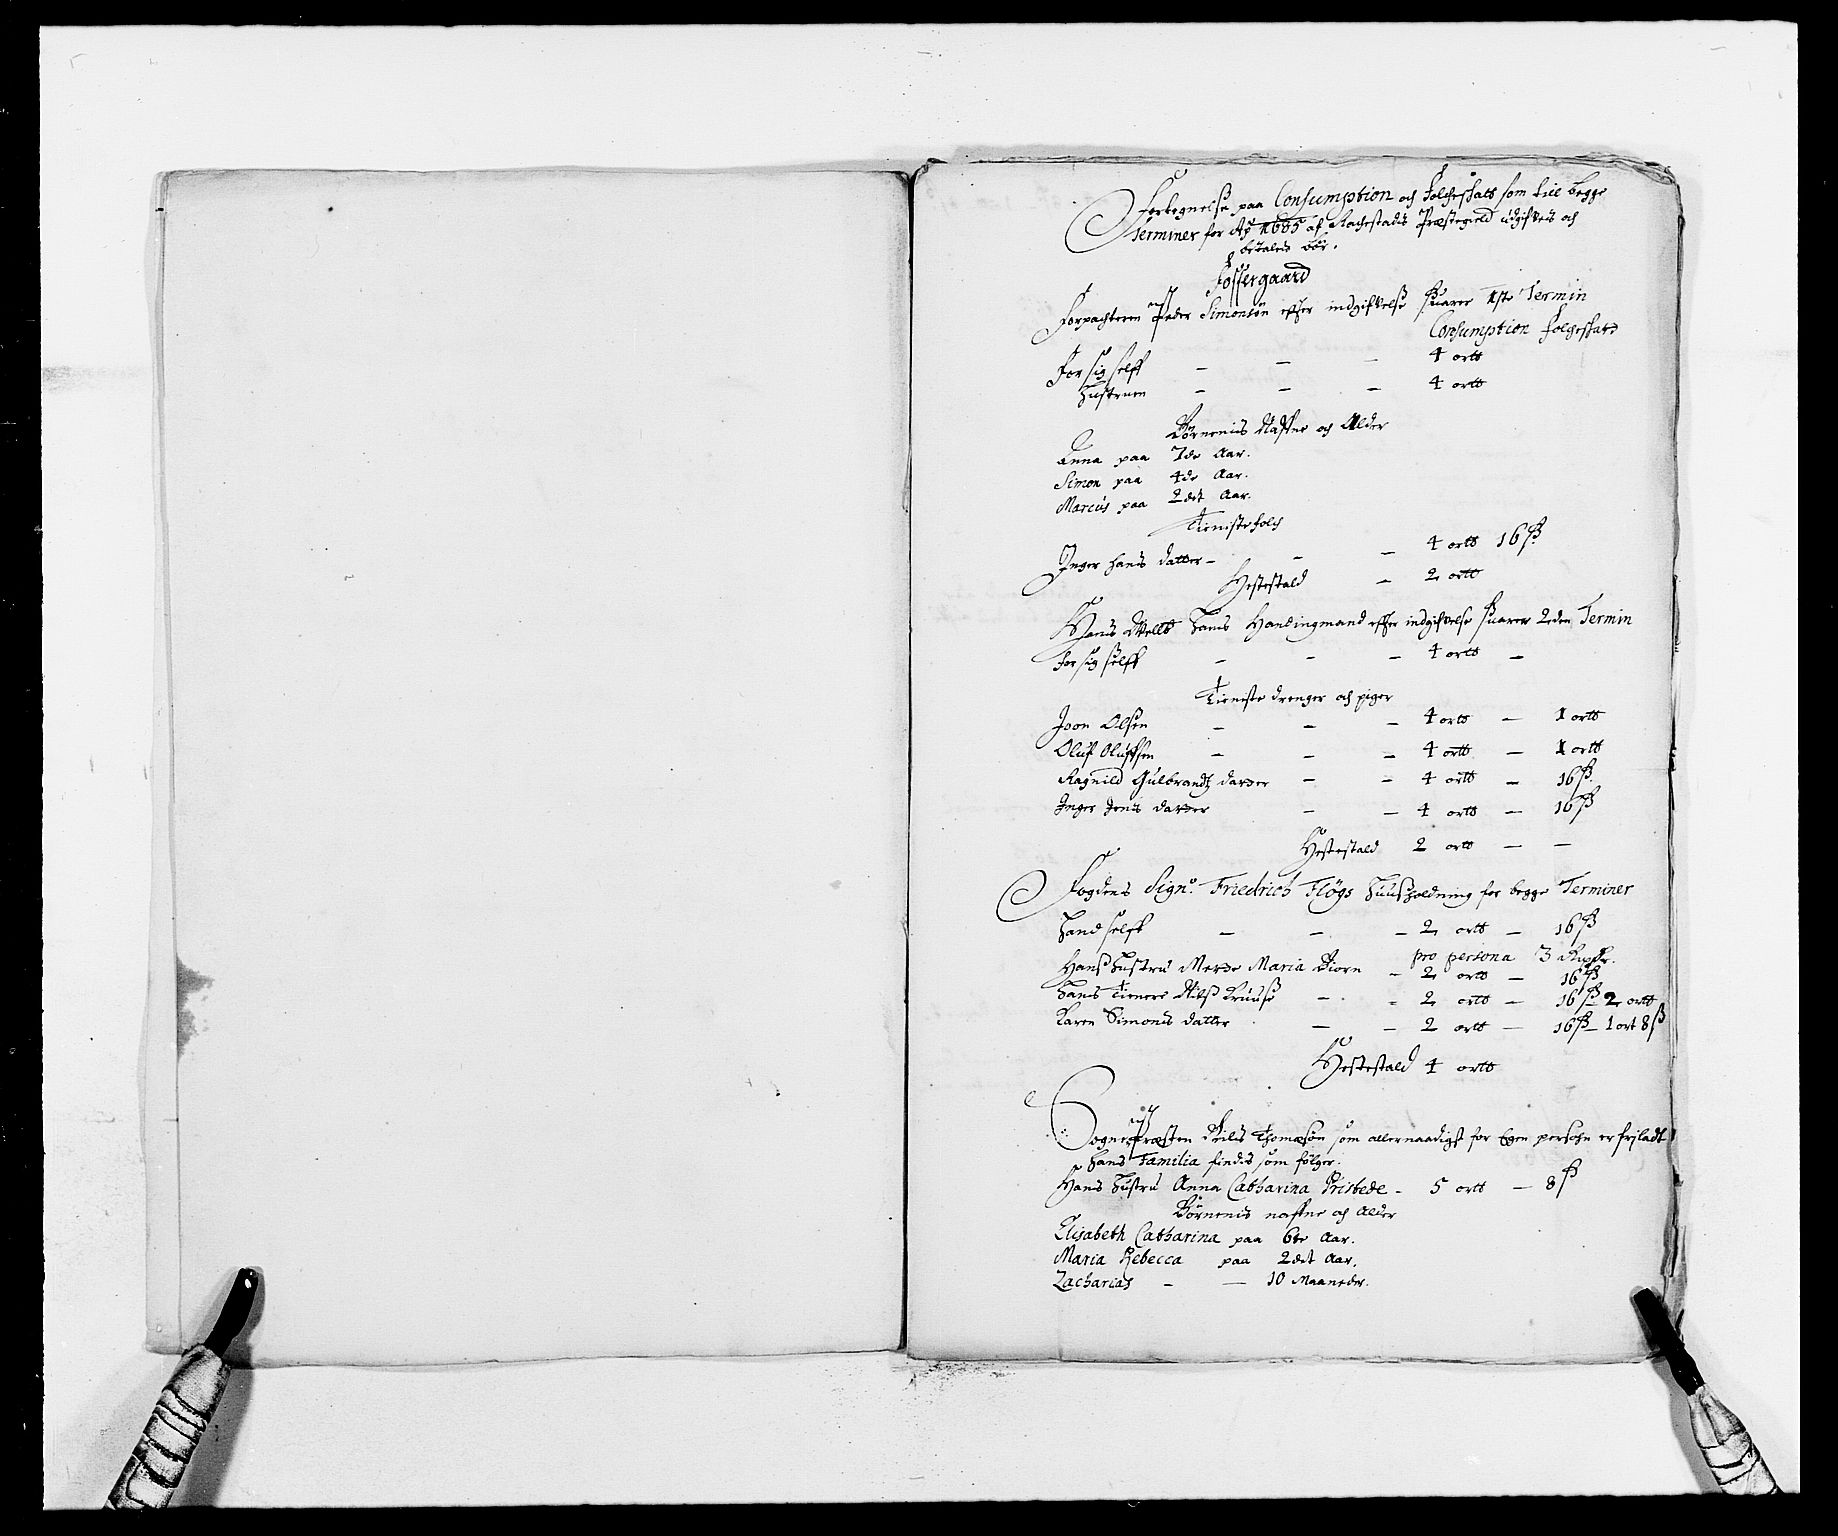 Fortegnelse paa Consumption och Folcheskatt som till begge
Terminer for Aō 1685 af Rachestads Præstegield udgifves och
betales bør.
Fossergaard
Forpachteren Peder Simonsøn effter indgifvelse suarer 1ste Termin
Consumption Folgeskatt
For sig selff - - - 4 ortt
Hustruen - - - 4 ortt
Børnenis Naffne och Alder
Anna paa 7de Aar.
Simon paa 4de Aar.
Marcus paa 2det Aar.
Tienistefolch
Inger Hans datter - - - 4 ortt 16 ß
Hestestald - 2 ortt
Hans Hantingmand effter indgifvelse suarer 2den Termin
For sig selff - - - 4 ortt -
Tieniste drenger och piger
Joon Olsen - - - 4 ortt - 1 ortt
Oluf Oluffsen - - - 4 ortt - 1 ortt
Ragnild Gulbrandtz datter - - 4 ortt - 16 ß
Inger Jens datter - - 4 ortt - 16 ß
Hestestald 2 ortt - -
Fogdens Signr. Friedrich Fløgs Huusholdning for begge Terminer
Hand selff - - - 2 ortt - 16 ß
pro persona 3
Hans Hustru Mette Maria Biorn - 2 ortt - 16 ß
Hans Tienere Nilß Kruuse - - 2 ortt - 16 ß - 2 ortt
Karen Simons datter - - 2 ortt - 16 ß - 1 ort 8 ß
Hestestald 4 ortt
Sognepræsten Thomæsøn som allernaadigst for Egen persohn er frjladt
Hans Familia findes som følger.
Hans Hustru Anna Catharina Pristede - 5 ortt - 8 ß
Børnenis naffne och Alder
Elisabeth Catharina paa 6te Aar.
Maria Rebecca paa 2det Aar.
Zacharias - - 10 Maaneder.